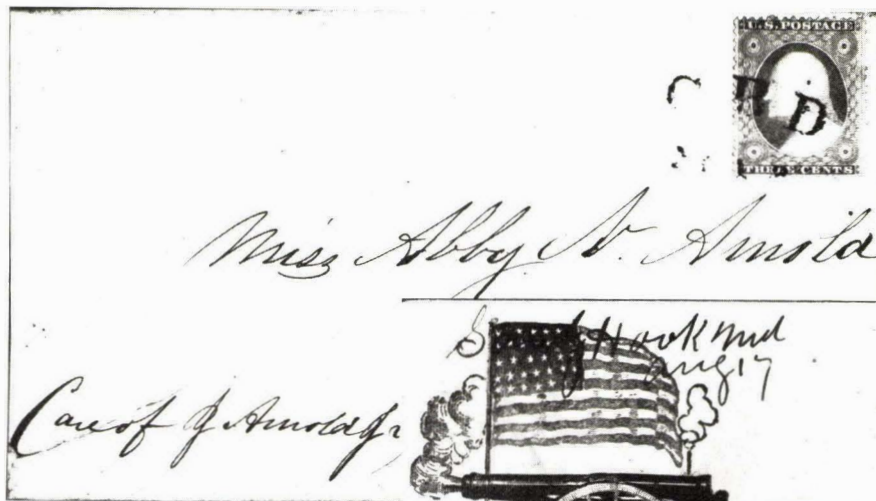 U.S. POSTAGE
THREE CENTS
Miss Abby N. Arnold
Hook Md
Aug 17
Care of J Arnold Jr